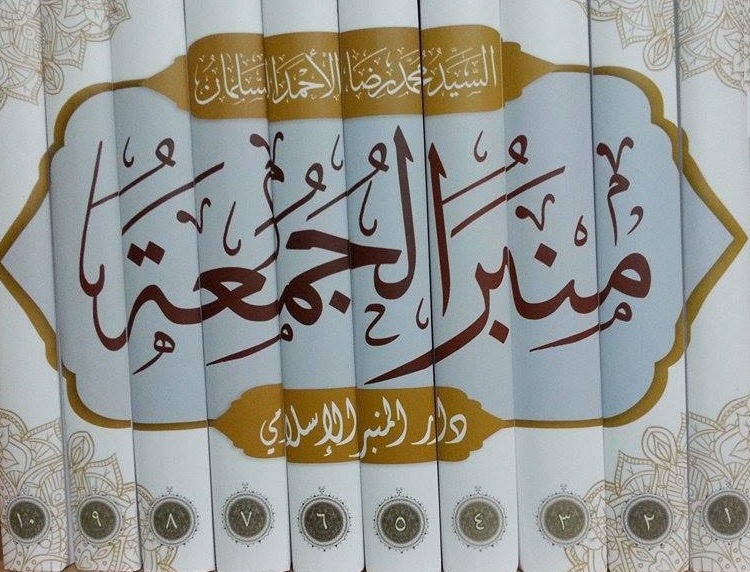 السيد محمد رضا الأحمد السلمان
منبر الجمعة
دار المنبر الإسلامي
١ ٢ ٣ ٤ ٥ ٦ ٧ ٨ ٩ ١٠